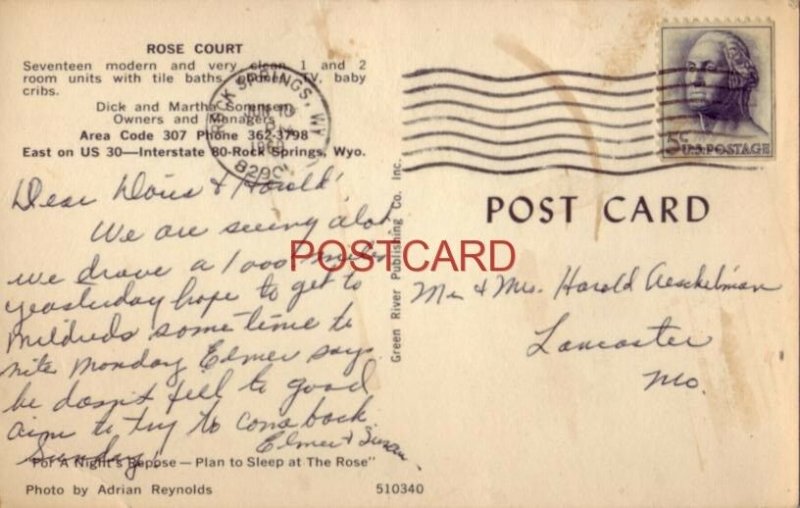 ROSE COURT
Seventeen modern and very clean 1 and 2
room units with tile baths, phones, TV, baby
cribs.
Dick and Martha Sorensen,
Owners and Managers
Area Code 307 Phone 362-3798
East on US 30—Interstate 80-Rock Springs, Wyo.
Dear Doris & Harold!
We are seeing alot
we drove a 1000 miles
yeasterday hope to get to
Mildreds some time to
nite Monday Elmer says
he dosn't feel to good
aim to try to come back
Sunday!
Elmer & Susan.
"For A Night's Repose—Plan to Sleep at The Rose"
Photo by Adrian Reynolds
510340
Green River Publishing Co. Inc.
ROCK SPRINGS, WY
5¢ U.S. POSTAGE
POST CARD
POSTCARD
Mr & Mrs. Harold Aeschelman
Lancaster
Mo.